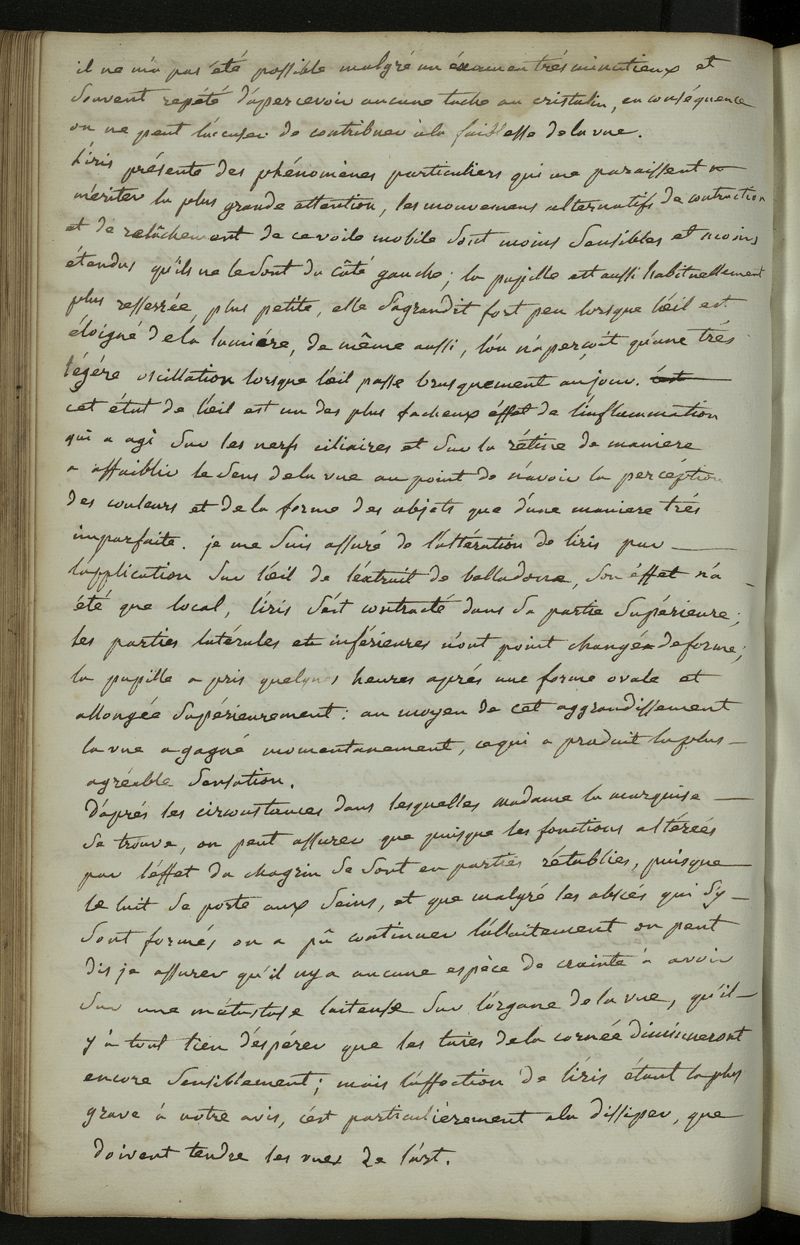 il ne m'a pas été possible malgré un éxamen trés minutieux et
souvent repété d'apercevoir aucune tache au cristalin, en conséquence
on ne peut l'accuser de contribuer à la faiblesse de la vue.
L'iris présente des phénomènes particuliers qui me paraissent
mériter la plus grande attention, les mouvemens alternatifs de contraction
et de relâchement de ce voile mobile sont moins sensibles et moins
étendus qu'ils ne le sont du côté gauche; la pupille est aussi habituellement
plus resserrée, plus petite, elle s'agrandit fort peu lorsque l'œil est
éloigné de la lumiére, de même aussi, l'on n'aperçoit qu'une trés
légére oscillation lorsque l'œil passe brusquement au jour. c'est
cet état de l'œil est un des plus facheux éffet de l'inflammation
qui a agi sur les nerfs ciliaires et sur la rétine de maniere
a affaiblir le sens de la vue au point de n'avoir la perception
des couleurs et de la forme des objets que d'une maniere trés
imparfaite. je me suis assuré de l'altération de l'iris par
l'application sur l'œil de l'éxtrait de belladone, son éffet n'a
été que local, l'iris s'ést contracté dans sa partie supérieure;
les parties latérales et inférieures n'ont point changé de forme;
la pupille a pris quelques heures aprés une forme ovale et
allongée supérieurement: au moyen de cet aggrandissement
la vue a gagné momentanement, ce qui a produit la plus
agréable sensation.
D'aprés les circonstances dans lesquelles madame la marquise
se trouve, on peut assurer que puisque les fonctions altérées
par l'éffet du chagrin se sont en parties rétablies, puisque
le lait se porte aux seins, et que malgré les abscés qui s'y
sont formés on a pû continuer l'allaitement on peut
dis je assurer qu'il n'y a aucune espèce de crainte à avoir
sur une métastase laiteuse sur l'organe de la vue, qu'il
y à tout lieu d'éspérer que les taies de la cornée diminueront
encore sensiblement; mais l'affection de l'iris étant la plus
grave à notre avis, c'ést particuliérement a la dissiper, que
doivent tendre les vues de l'art.